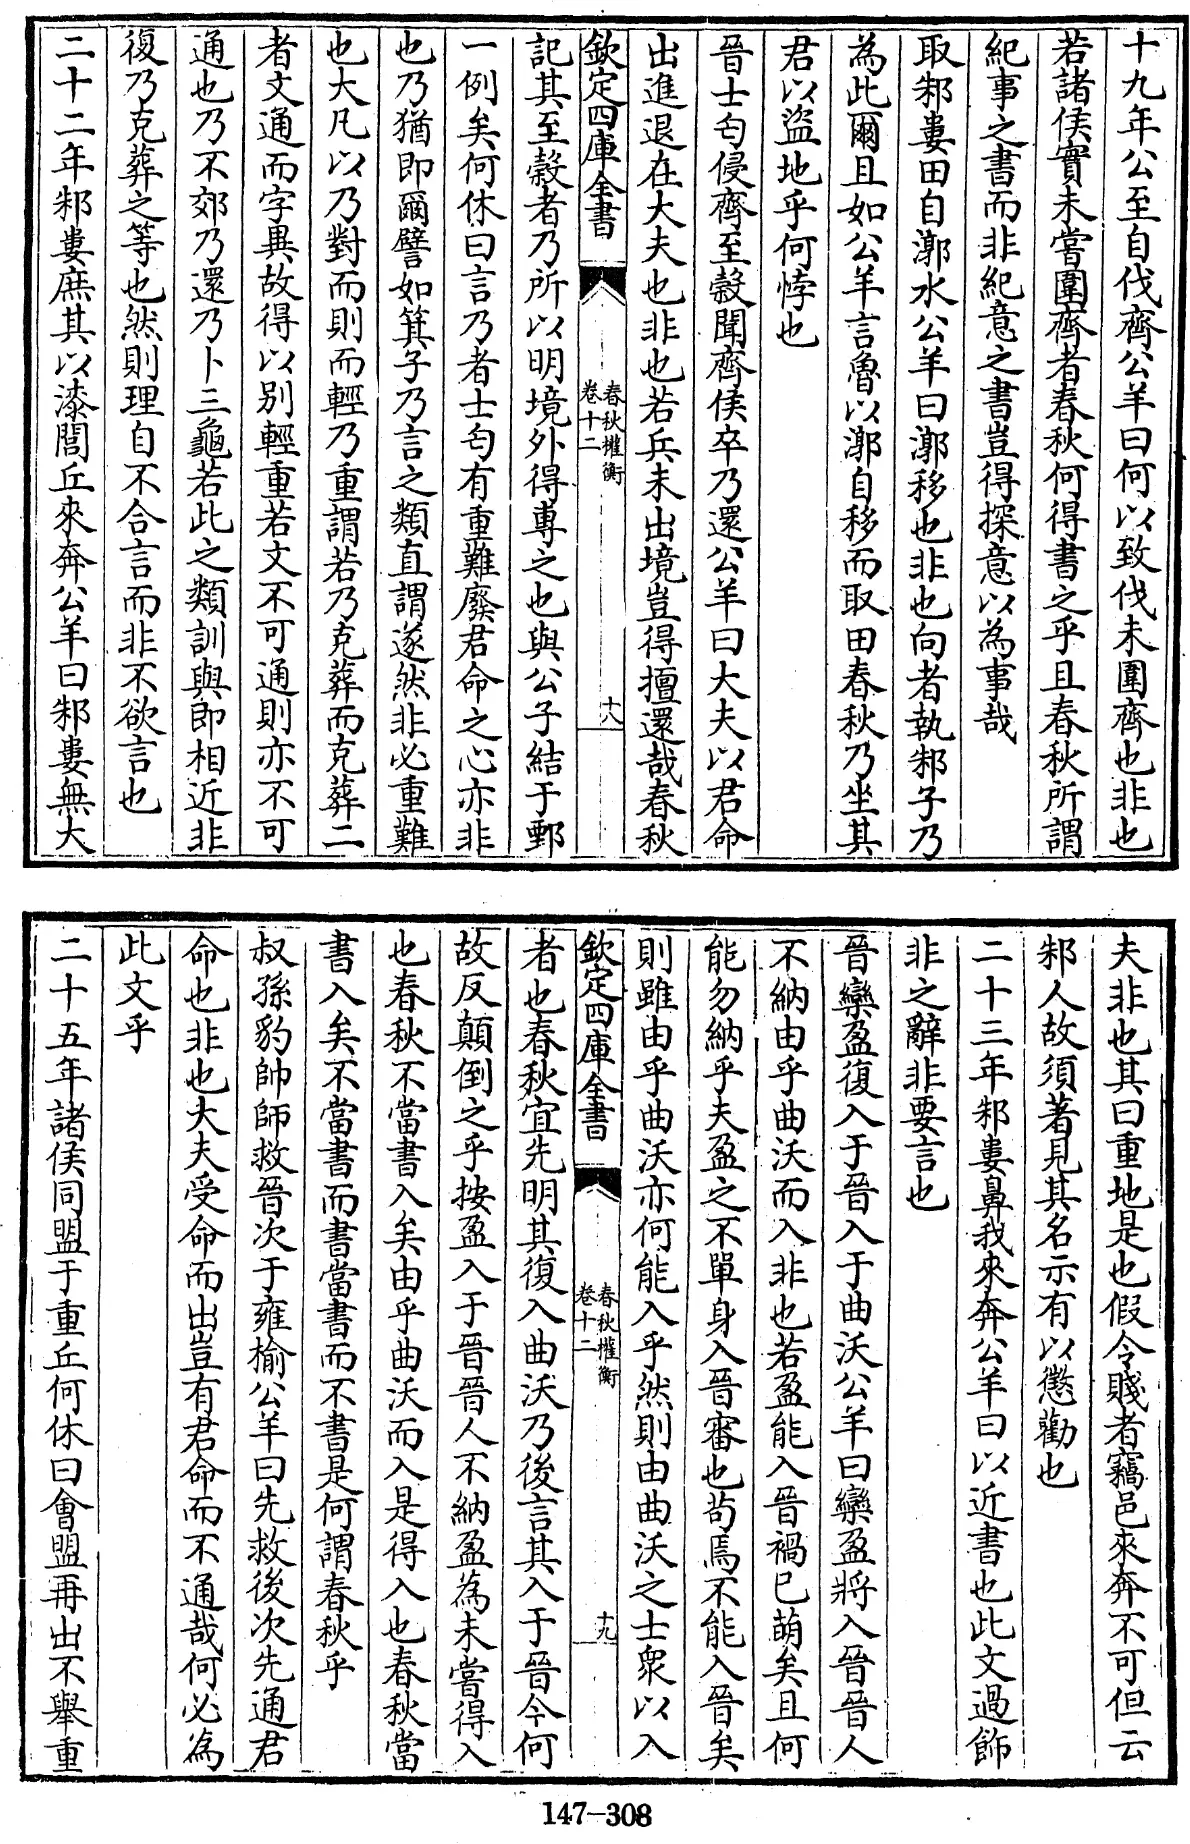 十九年公至自伐齊公羊曰何以致伐未圍齊也非也
若諸侯實未嘗圍齊者春秋何得書之乎且春秋所謂
紀事之書而非紀意之書豈得探意以為事哉
取邾婁田自漷水公羊曰漷移也非也向者執邾子乃
為此爾且如公羊言魯以漷自移而取田春秋乃坐其
君以盜地乎何悖也
晉士匄侵齊至穀聞齊侯卒乃還公羊曰大夫以君命
出進退在大夫也非也若兵未出境豈得擅還哉春秋
欽定四庫全書
春秋權衡
卷十二
十八
記其至穀者乃所以明境外得專之也與公子結于鄄
一例矣何休曰言乃者士匄有重難廢君命之心亦非
也乃猶即爾譬如箕子乃言之類直謂遂然非必重難
也大凡以乃對而則而輕乃重謂若乃克葬而克葬二
者文通而字異故得以別輕重若文不可通則亦不可
通也乃不郊乃還乃卜三龜若此之類訓與即相近非
復乃克葬之等也然則理自不合言而非不欲言也
二十二年邾婁庶其以漆閭丘來奔公羊曰邾婁無大
夫非也其曰重地是也假令賤者竊邑來奔不可但云
邾人故須著見其名示有以懲勸也
二十三年邾婁鼻我來奔公羊曰以近書也此文過飾
非之辭非要言也
晉欒盈復入于晉入于曲沃公羊曰欒盈將入晉晉人
不納由乎曲沃而入非也若盈能入晉禍已萌矣且何
能勿納乎夫盈之不單身入晉審也苟焉不能入晉矣
則雖由乎曲沃亦何能入乎然則由曲沃之士衆以入
欽定四庫全書
春秋權衡
卷十二
十九
者也春秋宜先明其復入曲沃乃後言其入于晉今何
故反顛倒之乎按盈入于晉晉人不納盈為未嘗得入
也春秋不當書入矣由乎曲沃而入是得入也春秋當
書入矣不當書而書當書而不書是何謂春秋乎
叔孫豹帥師救晉次于雍榆公羊曰先救後次先通君
命也非也大夫受命而出豈有君命而不通哉何必為
此文乎
二十五年諸侯同盟于重丘何休曰會盟再出不舉重
147-308